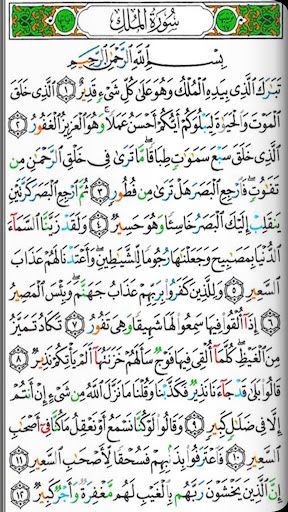 سُورَةُ الْمُلْكِ
بِسْمِ اللَّهِ الرَّحْمَٰنِ الرَّحِيمِ
تَبَارَكَ الَّذِي بِيَدِهِ الْمُلْكُ وَهُوَ عَلَىٰ كُلِّ شَيْءٍ قَدِيرٌ ﴿١﴾ الَّذِي خَلَقَ
الْمَوْتَ وَالْحَيَاةَ لِيَبْلُوَكُمْ أَيُّكُمْ أَحْسَنُ عَمَلًا وَهُوَ الْعَزِيزُ الْغَفُورُ ﴿٢﴾
الَّذِي خَلَقَ سَبْعَ سَمَاوَاتٍ طِبَاقًا مَّا تَرَىٰ فِي خَلْقِ الرَّحْمَٰنِ مِن
تَفَاوُتٍ فَارْجِعِ الْبَصَرَ هَلْ تَرَىٰ مِن فُطُورٍ ﴿٣﴾ ثُمَّ ارْجِعِ الْبَصَرَ كَرَّتَيْنِ
يَنقَلِبْ إِلَيْكَ الْبَصَرُ خَاسِئًا وَهُوَ حَسِيرٌ ﴿٤﴾ وَلَقَدْ زَيَّنَّا السَّمَاءَ
الدُّنْيَا بِمَصَابِيحَ وَجَعَلْنَاهَا رُجُومًا لِّلشَّيَاطِينِ وَأَعْتَدْنَا لَهُمْ عَذَابَ
السَّعِيرِ ﴿٥﴾ وَلِلَّذِينَ كَفَرُوا بِرَبِّهِمْ عَذَابُ جَهَنَّمَ وَبِئْسَ الْمَصِيرُ
﴿٦﴾ إِذَا أُلْقُوا فِيهَا سَمِعُوا لَهَا شَهِيقًا وَهِيَ تَفُورُ ﴿٧﴾ تَكَادُ تَمَيَّزُ
مِنَ الْغَيْظِ كُلَّمَا أُلْقِيَ فِيهَا فَوْجٌ سَأَلَهُمْ خَزَنَتُهَا أَلَمْ يَأْتِكُمْ نَذِيرٌ ﴿٨﴾
قَالُوا بَلَىٰ قَدْ جَاءَنَا نَذِيرٌ فَكَذَّبْنَا وَقُلْنَا مَا نَزَّلَ اللَّهُ مِن شَيْءٍ إِنْ أَنتُمْ
إِلَّا فِي ضَلَالٍ كَبِيرٍ ﴿٩﴾ وَقَالُوا لَوْ كُنَّا نَسْمَعُ أَوْ نَعْقِلُ مَا كُنَّا فِي أَصْحَابِ
السَّعِيرِ ﴿١٠﴾ فَاعْتَرَفُوا بِذَنبِهِمْ فَسُحْقًا لِّأَصْحَابِ السَّعِيرِ ﴿١١﴾
إِنَّ الَّذِينَ يَخْشَوْنَ رَبَّهُم بِالْغَيْبِ لَهُم مَّغْفِرَةٌ وَأَجْرٌ كَبِيرٌ ﴿١٢﴾